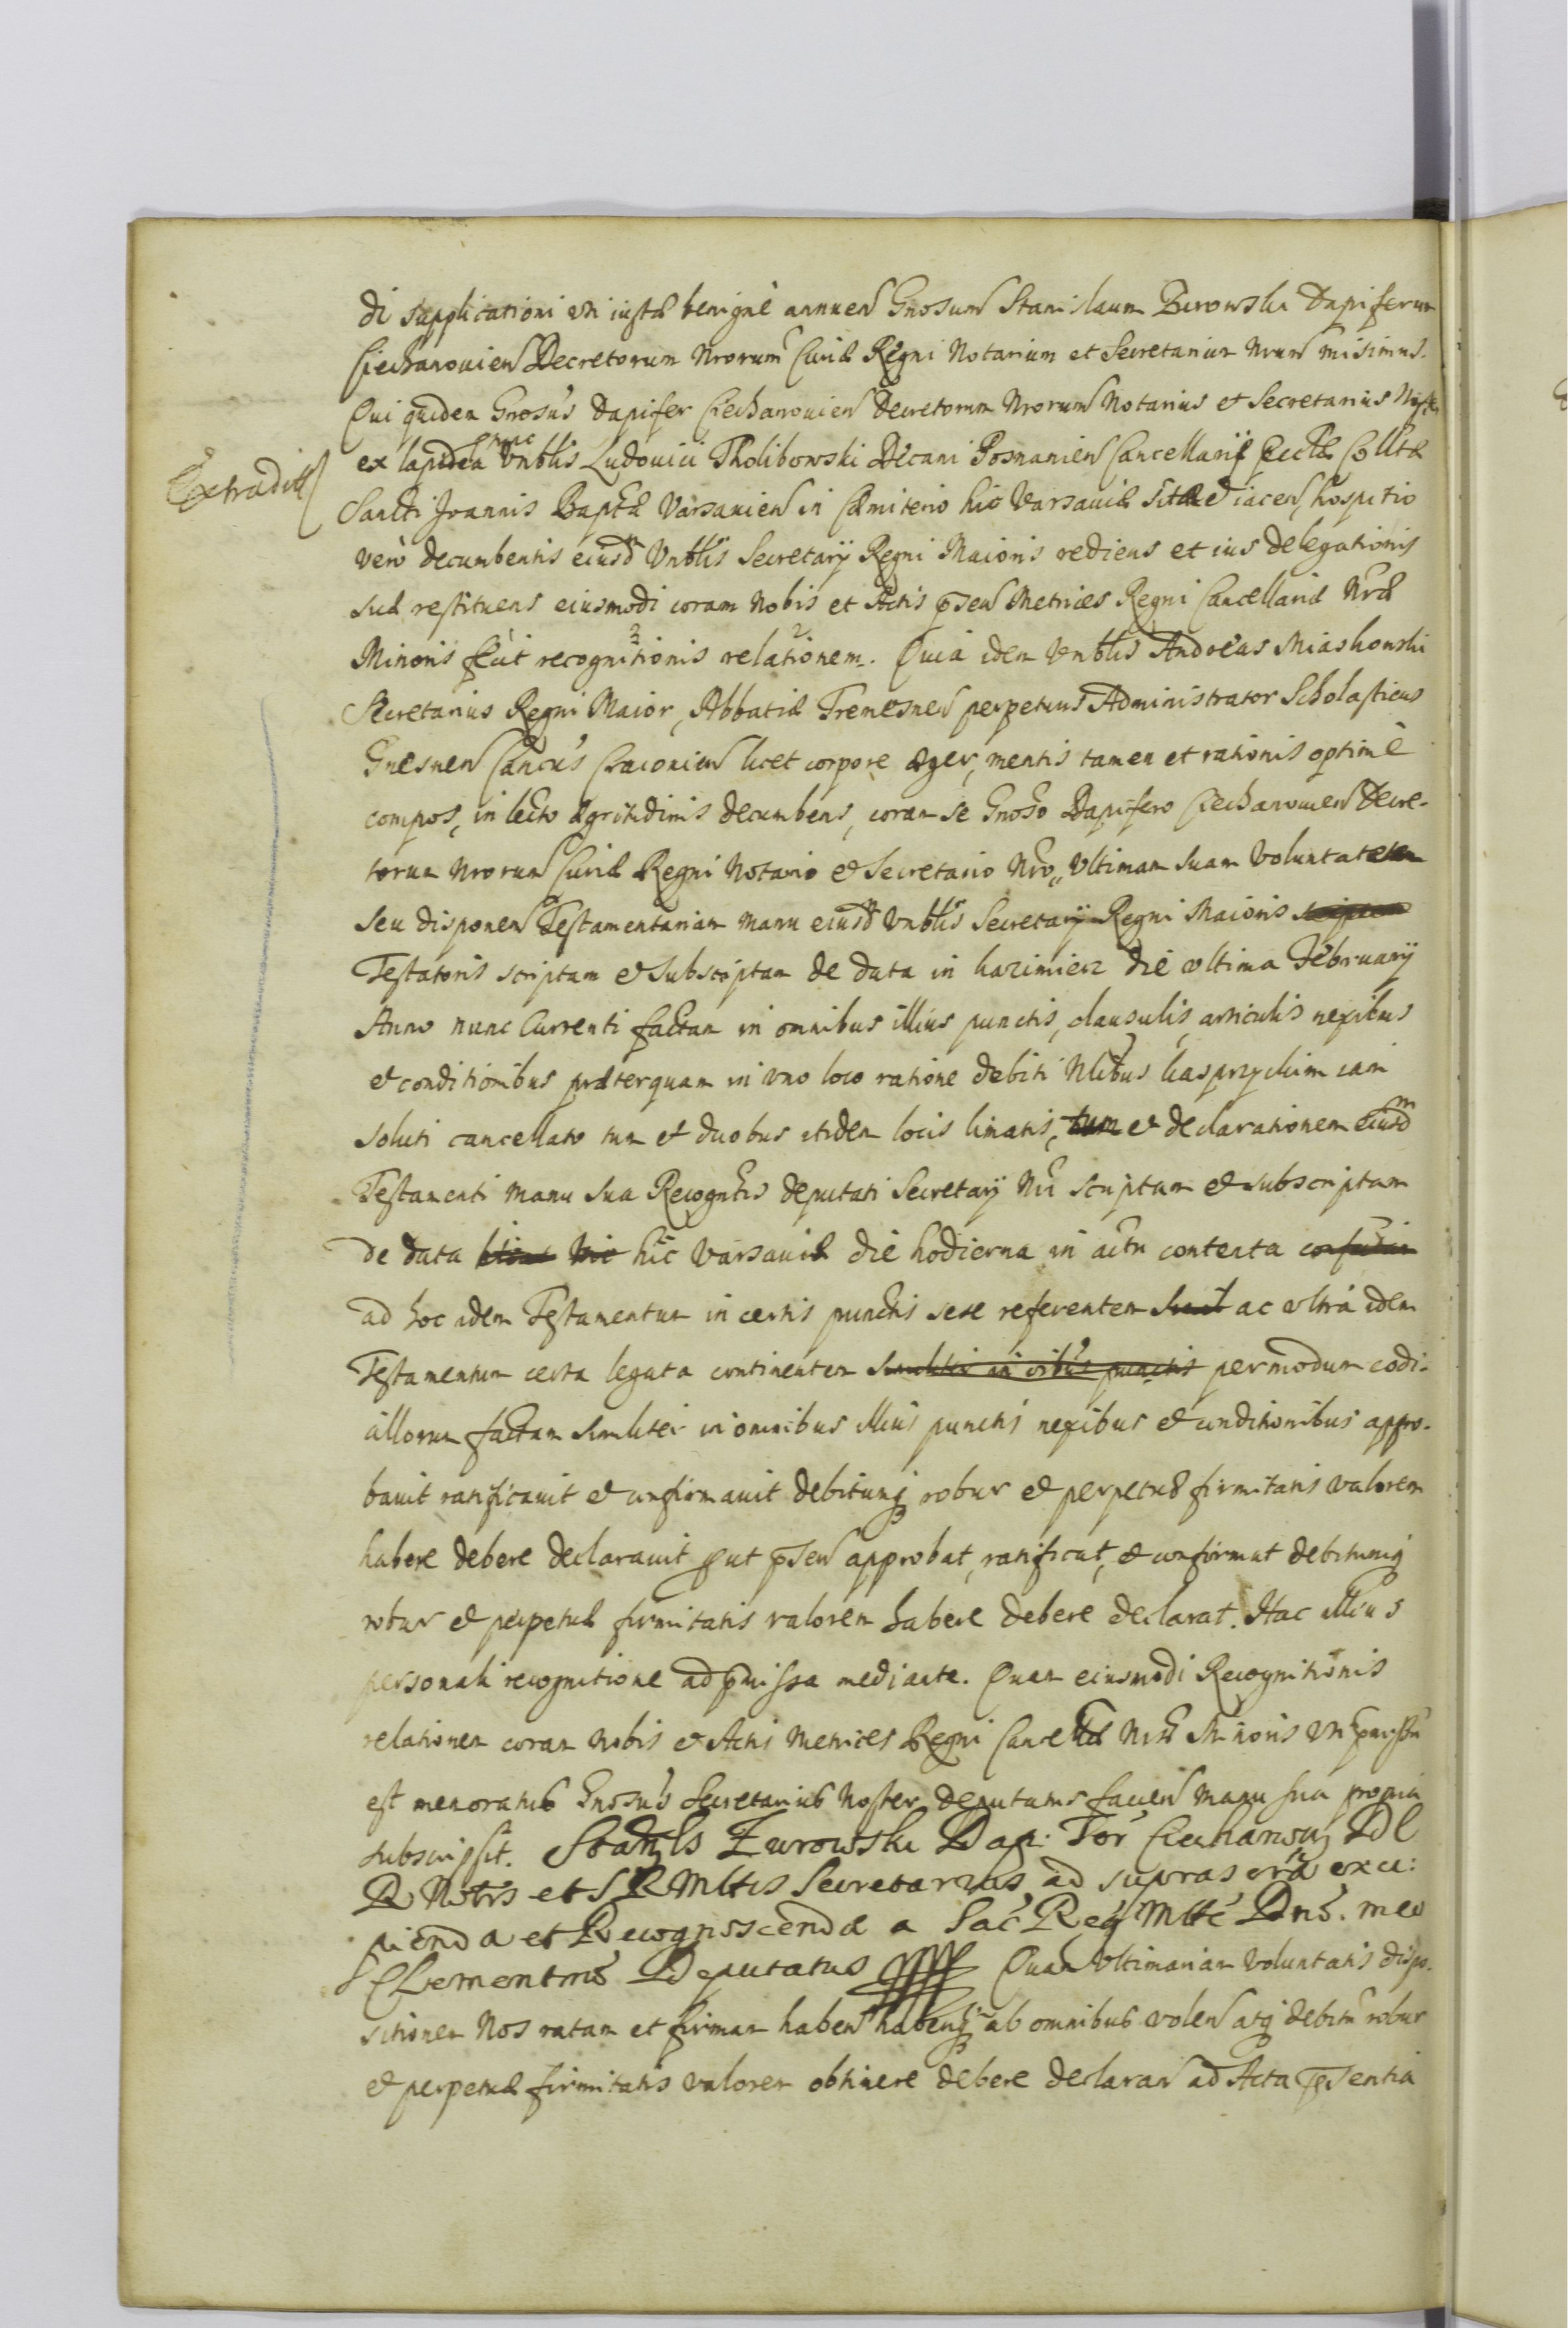 di supplicationi uti iustæ benignè annuen Gnosum Stanislaum Zurowski Dapiferum
Ciechanovien Decretorum Nrorum Curiæ Regni Notarium et Secretarium Nrum misimus.
Qui quidem Gnosus Dapifer Ciechanovien Decretorum Nrorum Notarius et Secretarius Noster
Extradit
ex lapidea nunc Vnblis Ludovici Tholibowski Decani Posnanien Cancellarij Eccłæ Colltæ
Sancti Joannis Baptæ Varsavien in Cæmiterio hic Varsaviæ sitæ et iacen, hospitio
verò decumbentis eiusdm Vnblis Secretarij Regni Maioris rediens et ius delegationis
suæ restituens eiusmodi coram Nobis et Actis psen Metrices Regni Cancellariæ Nræ
Minoris fecit recognitionis relationem. Quia idem Vnblis Andreas Miaskowski
Secretarius Regni Maior, Abbatiæ Tremesnen perpetuus Administrator Scholasticus
Gnesnen Cancus Cracovien licet corpore æger, mentis tamen et rationis optimè
compos, in lecto ægritudinis decumbens, coram se Gnoso Dapifero Ciechanovien Decre-
torum Nrorum Curiæ Regni Notario et Secretario Nro, Vltimam suam Voluntatem
seu disponen Testamentariam manu eiusdm Vnblis Secretarij Regni Maioris scriptam
Testatoris scriptam et subscriptam de data in Kazimierz die ultima February
Anno nunc Currenti factam in omnibus illius punctis, clausulis, articulis nexibus
et conditionibus præterquam in uno loco ratione debiti Nlibus Kasprzyckim iam
soluti cancellato tum et duobus itidem locis linatis, tum et declarationem eiusdm
Testamenti manu sua Recogntis deputati Secretarij Nri scriptam et subscriptam
de data hic Varsaviæ die hodierna in actu contenta
ad hoc idem Testamentum in certis punctis sese referentem ac ultrà idem
Testamentum certa legata continentem similiter in oibus punctis per modum codi-
cillorum factam similiter in omnibus illius punctis nexibus et conditionibus appro-
bavit ratificavit et confirmavit debitumq robur et perpetuæ firmitatis valorem
habere debere declaravit put psen approbat, ratificat, et confirmat debitumq
robur et perpetuæ firmitatis valorem habere debere declarat. Hac illius
personali recognitione ad pmissa mediante. Quam eiusmodi Recognitionis
relationem coram Nobis et Actis Metrices Regni Cancellæ Nræ Minoris uti pmissu
est memoratus Gnosus Secretarius Noster deputatus facien manu sua propria
subscripsit. Stanisls Zurowski Dap: Ter Ciechanow DC
R Notrs et S R Mttis Secretarius ad supras cra exci:
pienda et Recognoscenda a Sac Reg Mtte Dno. meo
Clementmo Deputatus Quam Vltimariam Voluntatis dispo-
sitionem Nos ratam et firmam haben haberiq ab omnibus volen atq debitu robur
et perpetuæ firmitatis valorem obtinere debere declaran ad Acta psentia